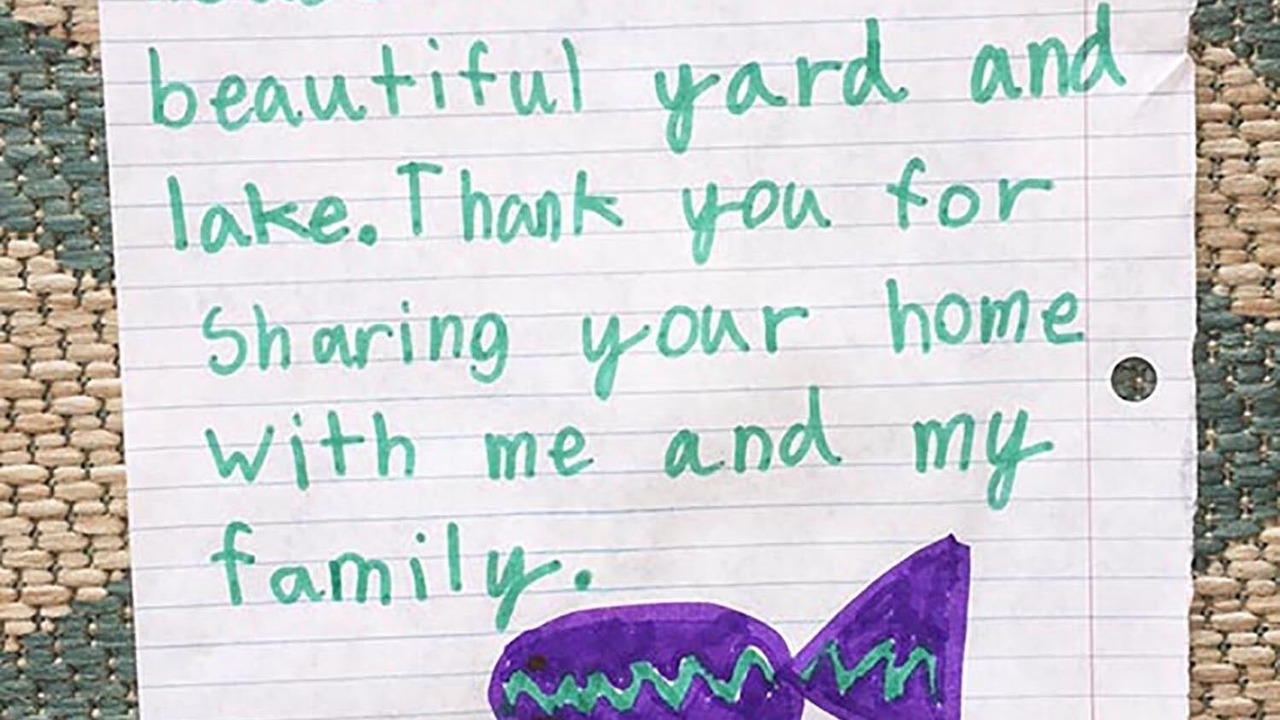 beautiful yard and
lake. Thank you for
Sharing your home
with me and my
family.